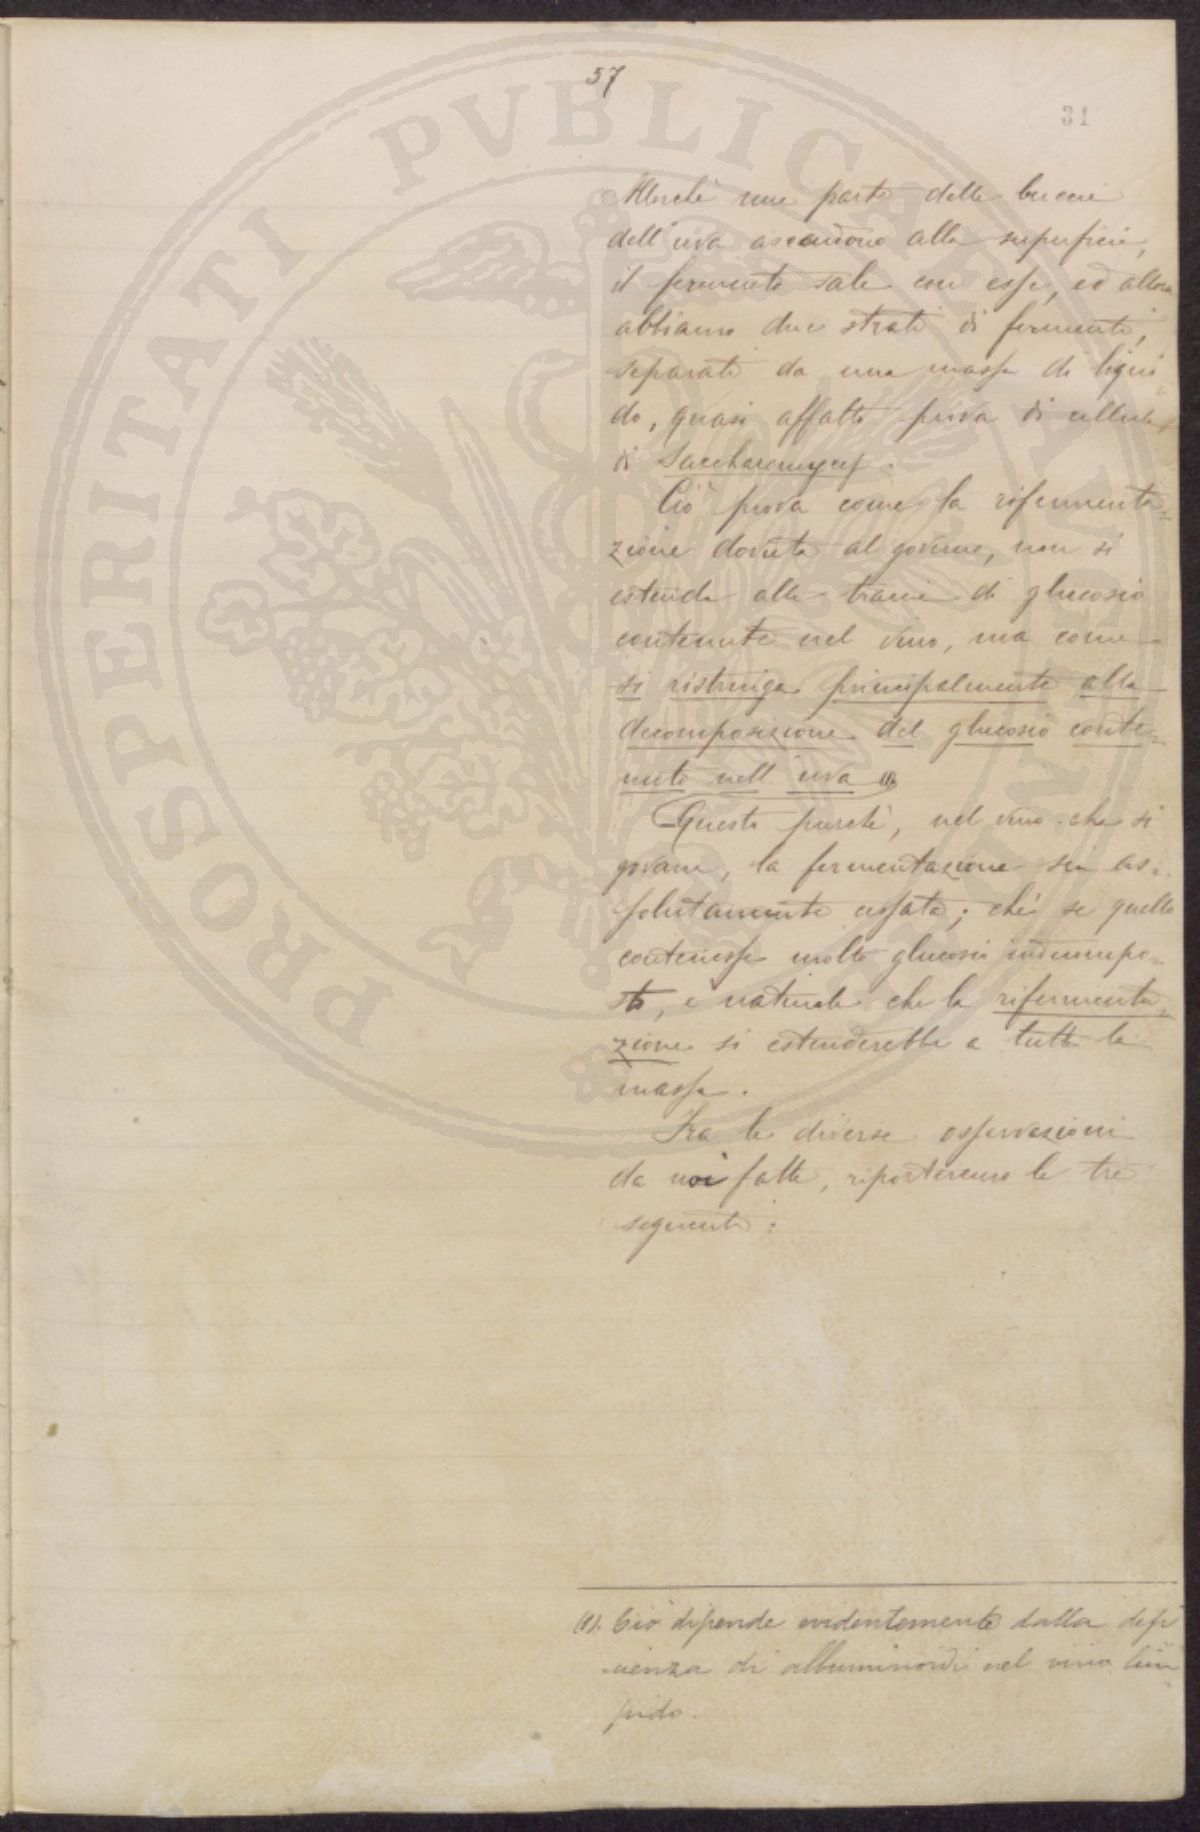 57
31
PROSPERITATI PVBLICAE
Allorchè una parte delle bucce
dell'uva ascendono alla superficie,
il fermento sale con esse, ed allora
abbiamo due strati di fermento,
separati da una massa di liqui-
do, quasi affatto priva di cellule
di Saccharomyces.
Ciò prova come la rifermenta=
zione dovuta al governo, non si
estenda alle traccie di glucosio
contenute nel vino, ma come
si ristringa principalmente alla
decomposizione del glucosio conte=
nuto nell'uva (1)
Questo purchè, nel vino che si
governa, la fermentazione sia as=
solutamente cessata; chè se quello
contenesse molto glucosio indecompo=
sto, è naturale che la rifermenta=
zione si estenderebbe a tutta la
massa.
Fra le diverse osservazioni
da noi fatte, riporteremo le tre
seguenti:
(1). Ciò dipende evidentemente dalla defi
cienza di albuminoidi nel vino lim=
pido.